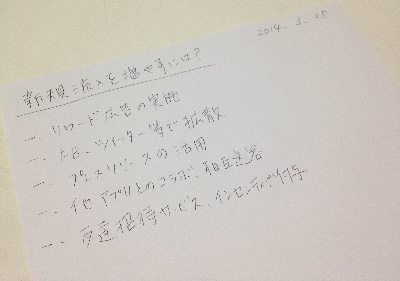 2014. 3. 25
新規流入を増やすには?
一、リワード広告の実施
一、FB、ツイッター等で拡散
一、プレスリリースの活用
一、他アプリとのコラボ、相互送客
一、友達招待サービス、インセンティブ付与